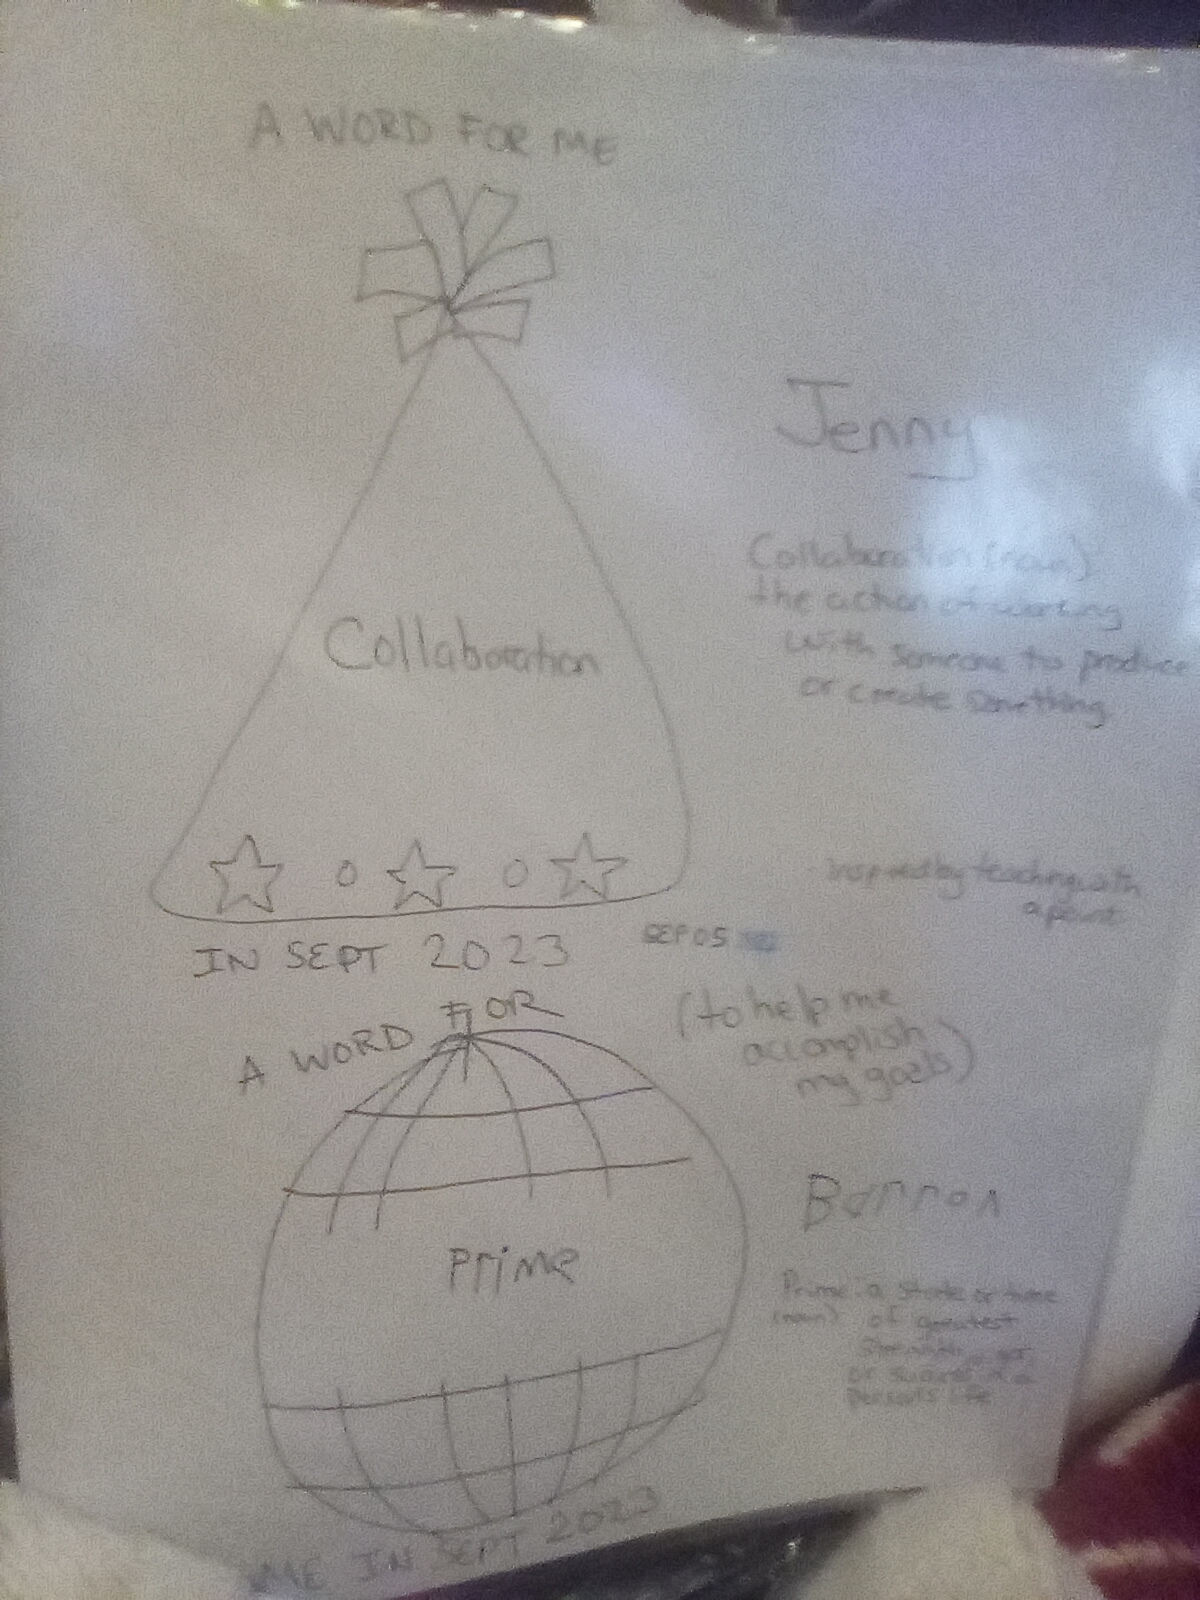 A WORD FOR ME
Jenny
Collaboration (noun)
the action of working
with someone to produce
or create something
Collaboration
inspired by teaching with
a point
IN SEPT 2023
SEP 05
A WORD FOR
(to help me
accomplish
my goals)
Barron
Prime
Prime: a state or time
(noun) of greatest
or success in a
person's life
ME IN SEPT 2023